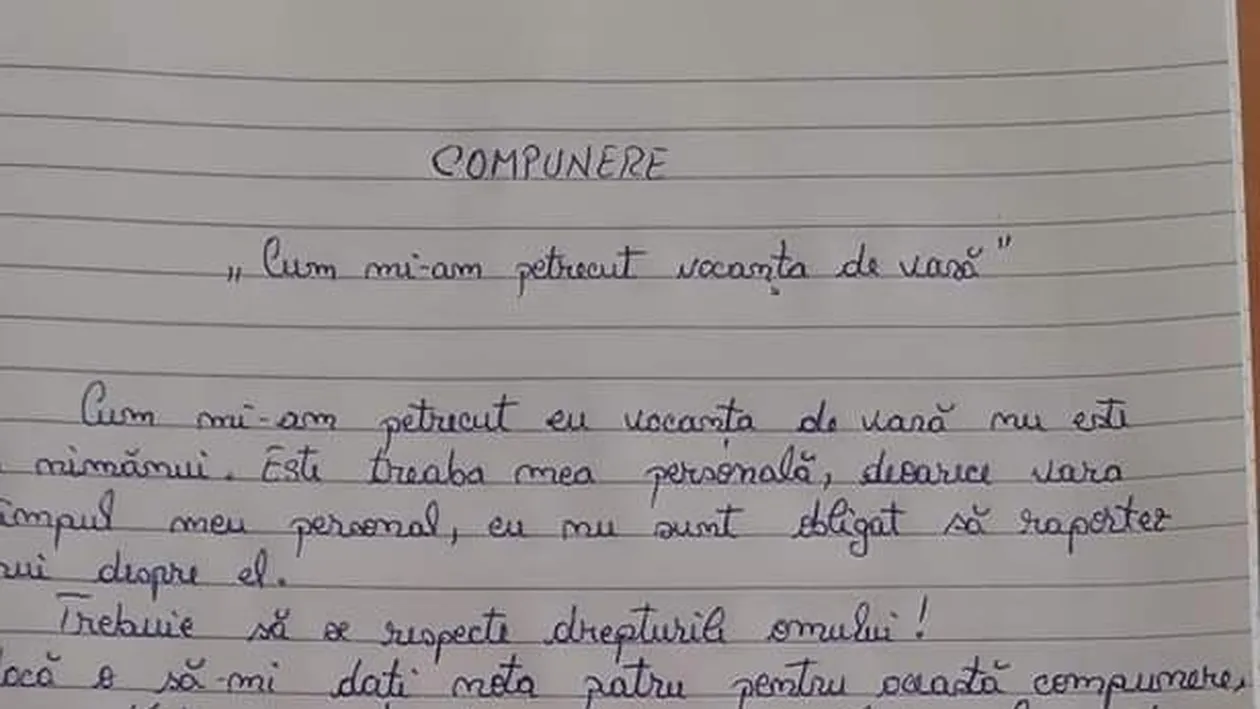 COMPUNERE
„Cum mi-am petrecut vacanța de vară"
Cum mi-am petrecut eu vacanța de vară nu este
nimănui. Este treaba mea personală, deoarece vara
timpul meu personal, eu nu sunt obligat să raportez
despre el.
Trebuie să se respecte drepturile omului!
Dacă o să-mi dați nota patru pentru această compunere,